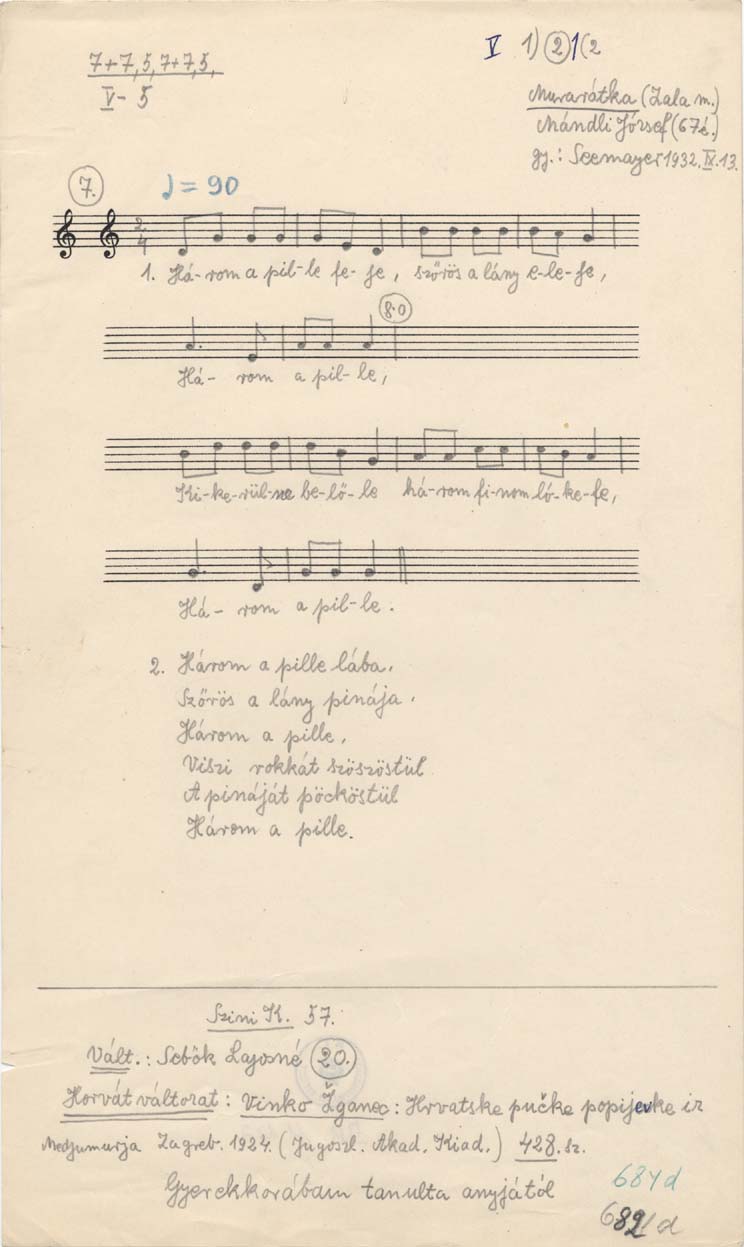 7+7, 5, 7+7, 5,
V - 5
V 1) 2 1(2
Murarátka (Zala m.)
Mándli József (67é.)
gy.: Seemayer 1932. IX. 13.
7.
♩ = 90
2
4
1. Há-rom a pil-le fe-je, szőrös a lány e-le-je,
8.0
Há- rom a pil-le,
Ki-ke-rül-ne be-lő-le há-rom fi-nom ló-ke-fe,
Há- rom a pil-le.
2. Három a pille lába.
Szőrös a lány pinája.
Három a pille,
Viszi rokkát szöszöstül
A pináját pöcköstül
Három a pille.
Szini K. 57.
Vált.: Sebők Lajosné 20.
Horvátváltozat: Vinko Žganec: Hrvatske pučke popijevke iz
Medjumurja Zagreb. 1924. (Jugoszl. Akad. Kiad.) 428. sz.
Gyerekkorában tanulta anyjától
681d